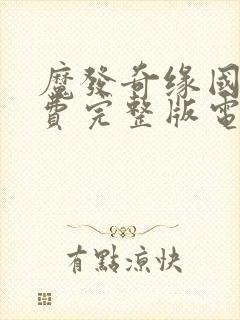 魔發奇缘国
費完整版電
有點涼快